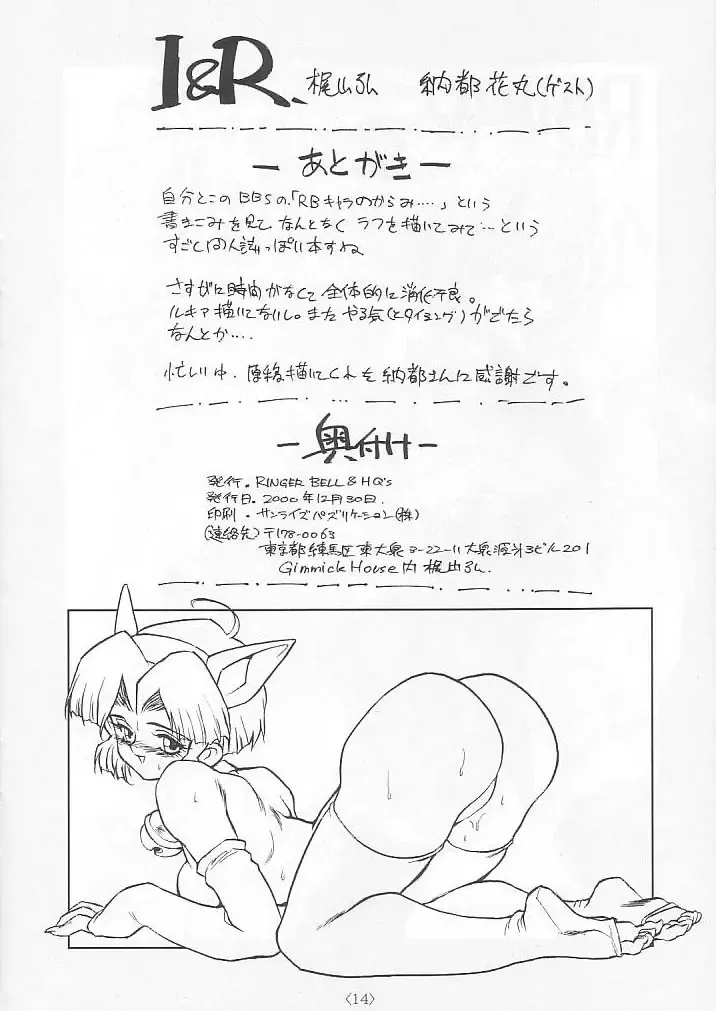 I&R. 梶山弘 納都花丸(ゲスト)
ーあとがきー
自分とこのBBSの、「RBキャラのからみ‥‥」という
書きこみを見て なんとなく ラフを描いてみて…という
すごく同人誌っぽい本ですね
さすがに時間がなくて 全体的に消化不良。
ルキア描いてないし。また やる気(とタイミング)がでたら
なんとか‥‥
忙しい中、原稿描いてくれた 納都さんに感謝です。
ー奥付けー
発行. RINGER BELL & HQ's
発行日. 2000年12月30日.
印刷・サンライズパブリケーション(株)
(連絡先)〒178-0063
東京都練馬区東大泉3-22-11 大泉 3ビル201
Gimmick House内 梶山弘.
〈14〉